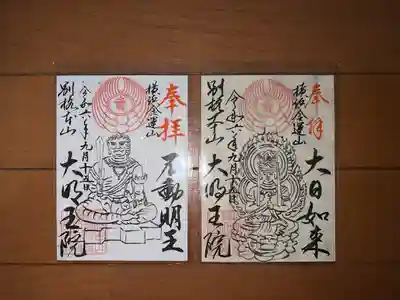 奉拝
横浜金運山
不動明王
令和六年九月十五日
別格本山
大明王院
奉拝
横浜金運山
大日如来
令和六年九月十五日
別格本山
大明王院